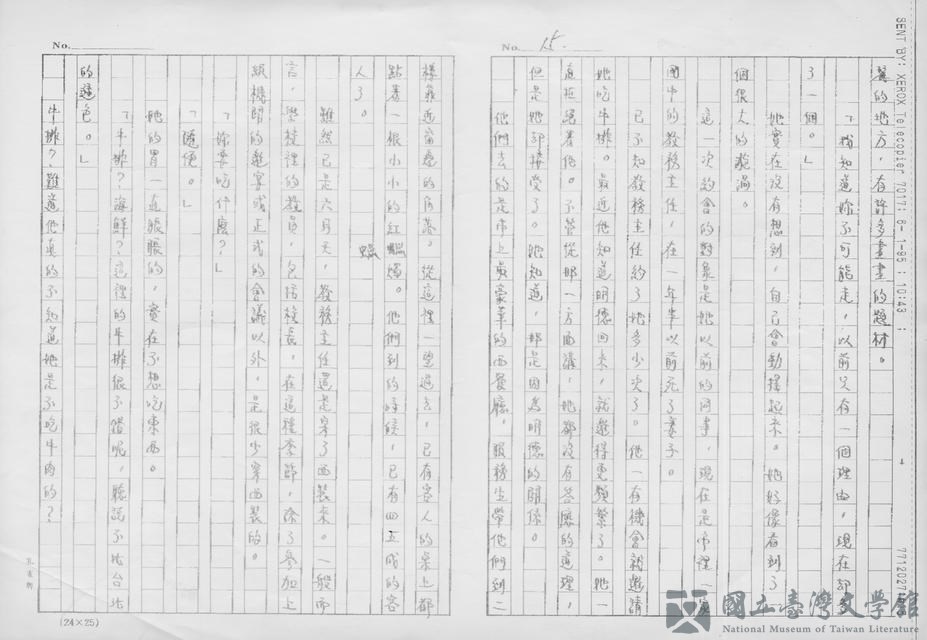 No. 15.
麗的地方，有許多畫畫的題材。
「我知道妳不可能走，以前只有一個理由，現在卻多
了一個。」
她實在沒有想到，自己會動搖起來。她好像看到了一
個很大的漩渦。
這一次約會的對象是她以前的同事，現在是市裡一家
國中的教務主任，在一年半以前死了妻子。
已不知教務主任約了她多少次了。他一有機會就邀請
她吃牛排。最近他知道明德回來，就邀得更頻繁了。她一
直拒絕著他。不管從那一方面講，她都沒有答應的道理，
但是她卻接受了。她知道，那是因為明德的關係。
他們去的是市上最豪華的西餐廳，服務生帶他們到二
樓靠近窗邊的角落。從這裡一望過去，已有客人的桌上都
點著一根小小的紅蠟燭。他們到的時候，已有四五成的客
人了。
雖然已是六月天，教務主任還是穿了西裝來。一般而
言，學校裡的教員，包括校長，在這種季節，除了參加上
級機關的邀宴或正式的會議以外，是很少穿西裝的。
「妳要吃什麼？」
「隨便。」
她的胃一直脹脹的，實在不想吃東西。
「牛排？海鮮？這裡的牛排很不錯呢，聽說不比台北
的遜色。」
牛排？難道他真的不知道她是不吃牛肉的？
No.
(24×25)
SENT BY: XEROX Telecopier 7017; 8- 1-95 ; 10:43 ;
國立臺灣文學館
National Museum of Taiwan Literature